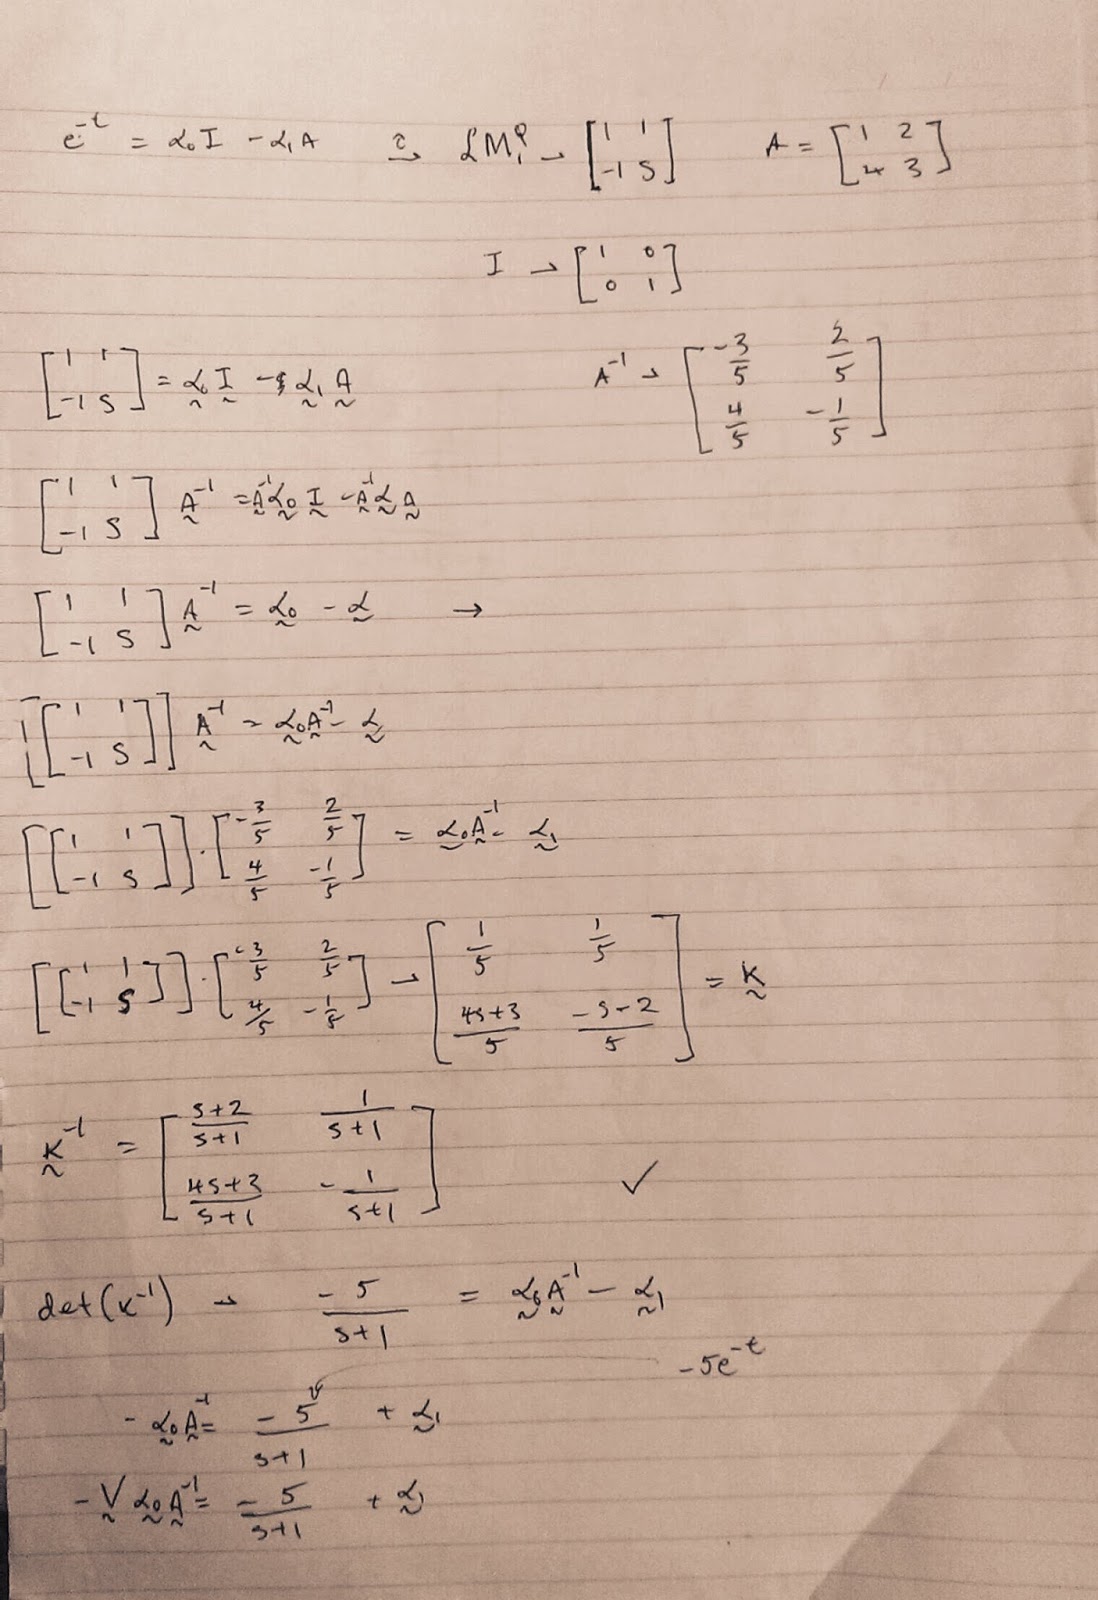 e^{-t} = α₀I - α₁A   ⇀   ℒM₁^φ ⇀ [1 1; -1 s]   A = [1 2; 4 3]
I → [1 0; 0 1]
[1 1; -1 s] = α₀ I - α₁ A   A⁻¹ → [-3/5 2/5; 4/5 -1/5]
[1 1; -1 s] A⁻¹ = A⁻¹α₀ I - A⁻¹α A
[1 1; -1 s] A⁻¹ = α₀ - α   →
[[1 1; -1 s]] A⁻¹ = α₀A⁻¹ - α
[[1 1; -1 s]] · [-3/5 2/5; 4/5 -1/5] = α₀A⁻¹ - α₁
[[1 1; -1 s]] · [-3/5 2/5; 4/5 -1/5] → [1/5 1/5; (4s+3)/5 (-s-2)/5] = K
K⁻¹ = [(s+2)/(s+1) 1/(s+1); (4s+3)/(s+1) -1/(s+1)]   ✓
det(K⁻¹) → -5/(s+1) = α₀A⁻¹ - α₁
-5e^{-t}
-α₀A⁻¹ = -5/(s+1) + α₁
-V α₀A⁻¹ = -5/(s+1) + α₁